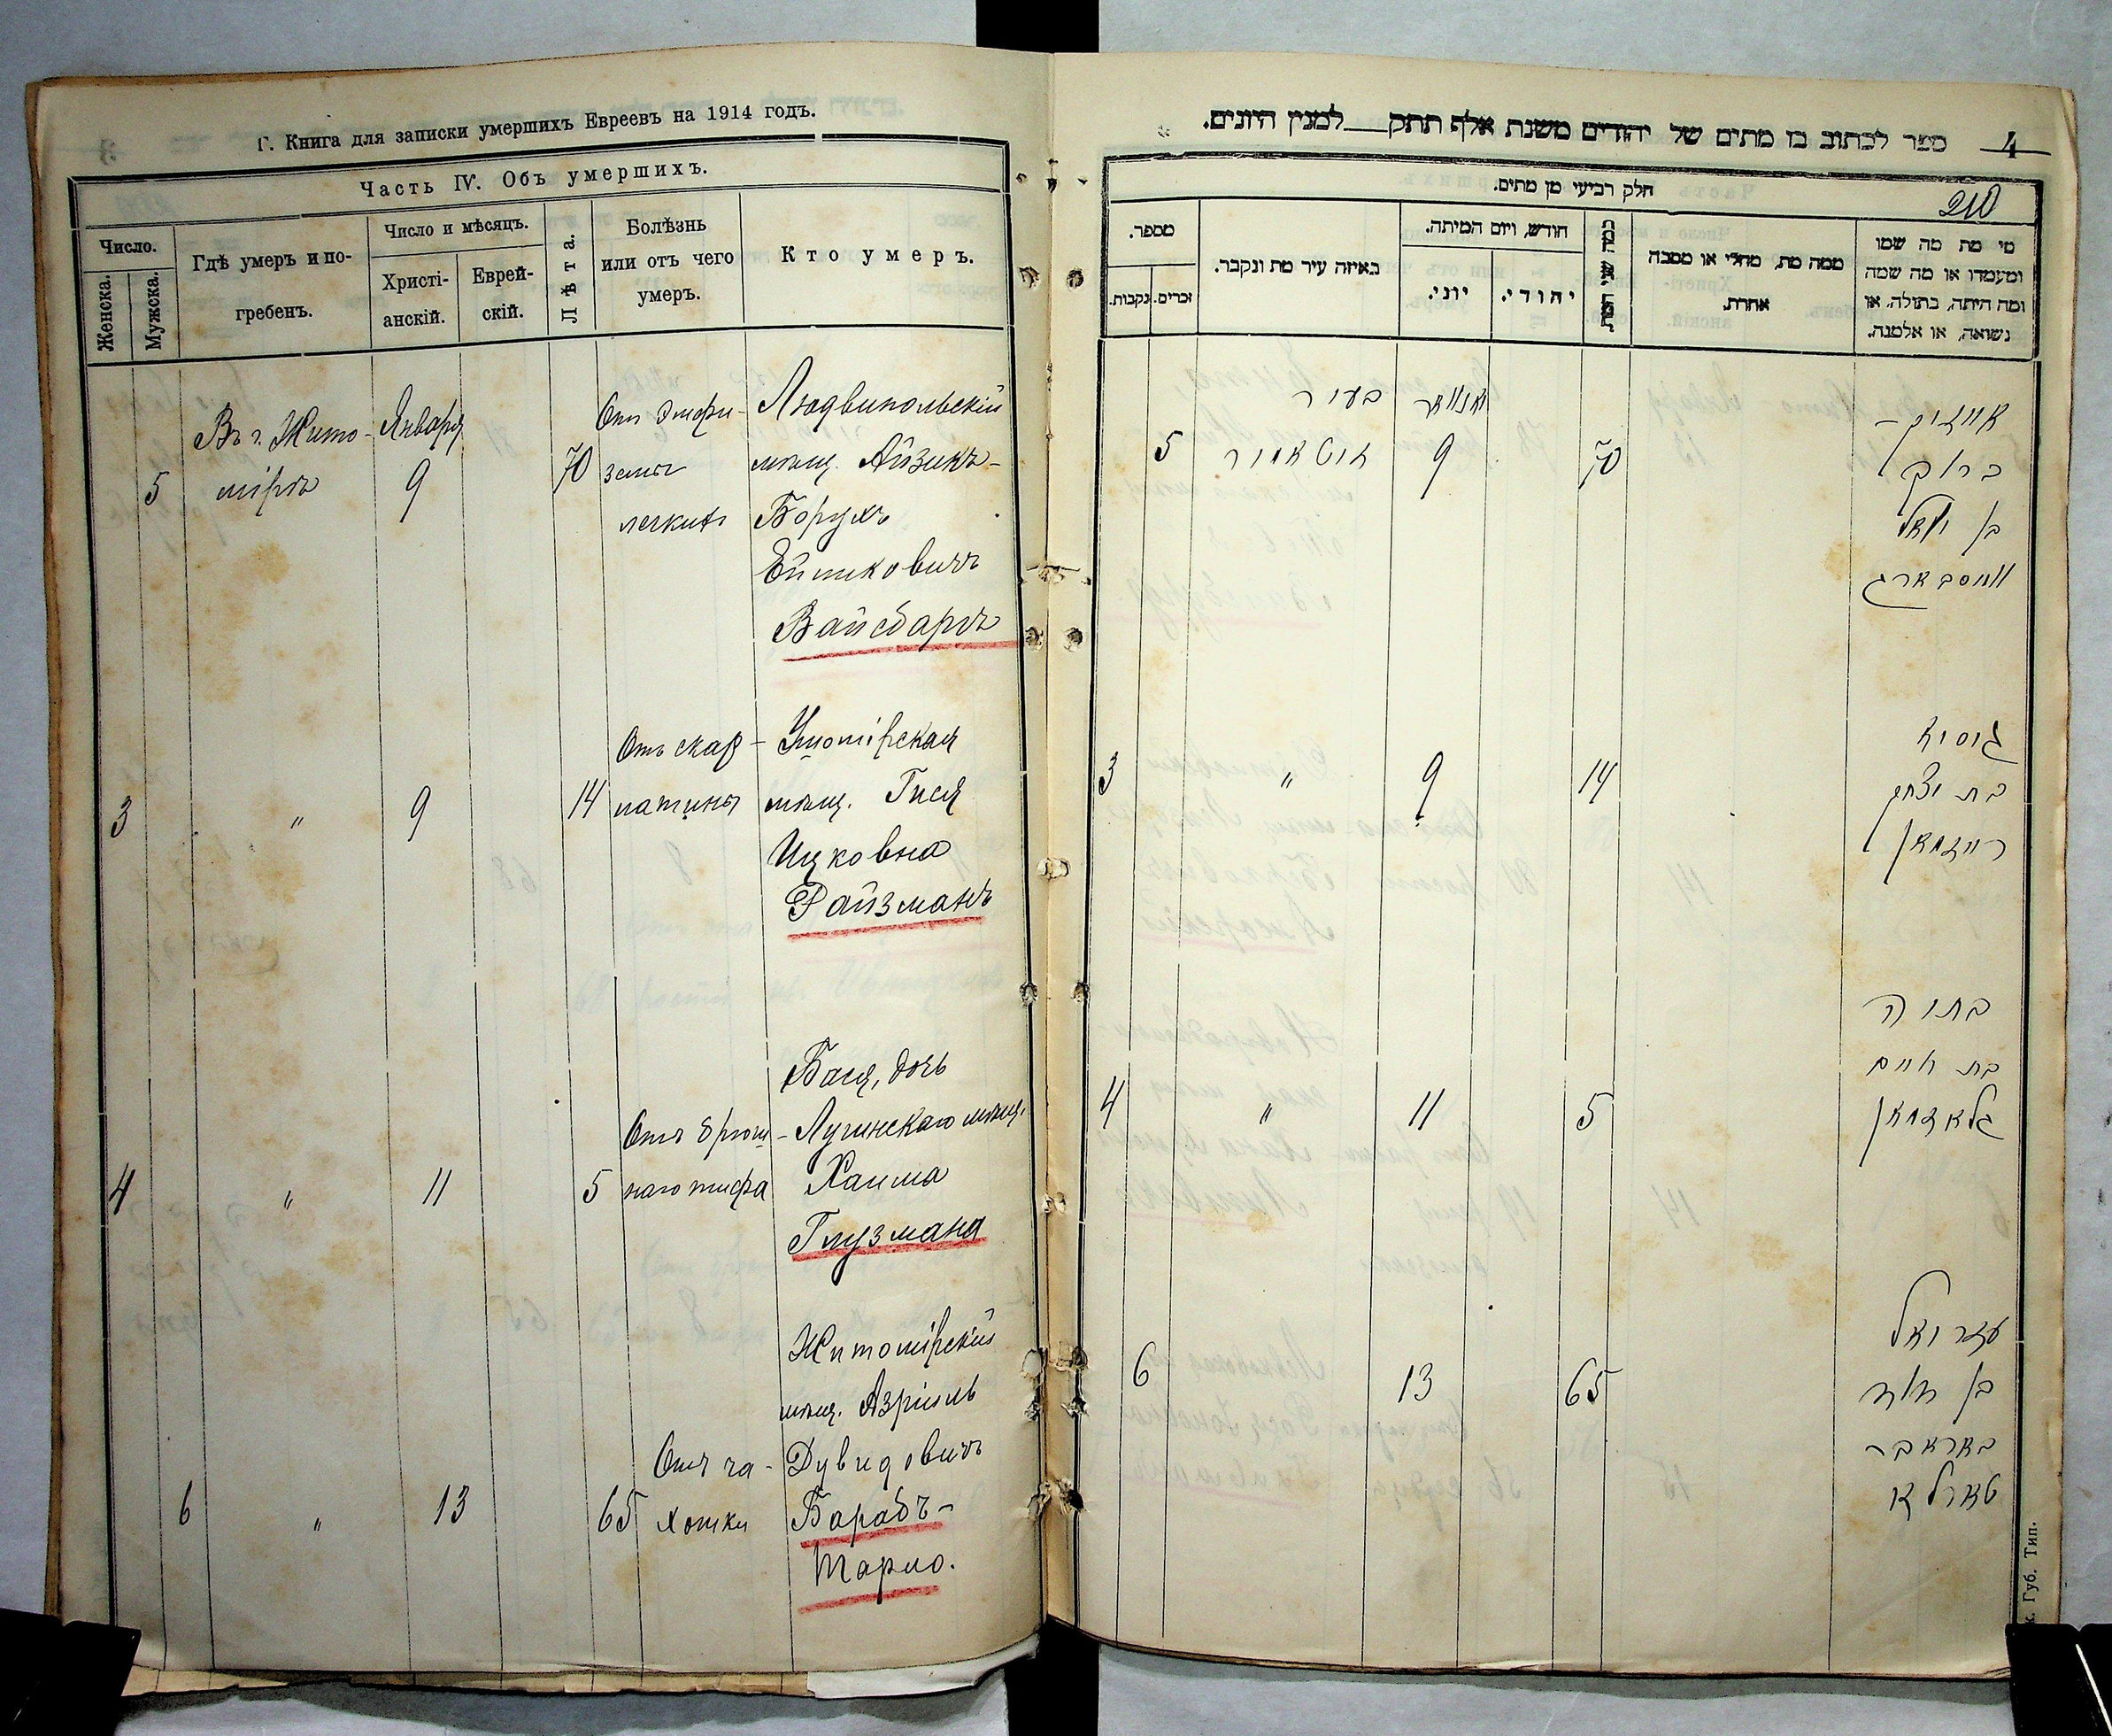 Г. Книга для записки умершихъ Евреевъ на 1914 годъ.
Часть IV. Объ умершихъ.
Число.
Женска.
Мужска.
Гдѣ умеръ и по-
гребенъ.
Число и мѣсяцъ.
Христі-
анскій.
Еврей-
скій.
Лѣта.
Болѣзнь
или отъ чего
умеръ.
Кто умеръ.
5
Въ г. Жито-
мірѣ
Января
9
70
Отъ эмфи-
земы
легкихъ
Людвипольскій
мѣщ. Айзикъ-
Борухъ
Вайсбаргъ
3
"
9
14
Отъ скар-
латины
Ушомірская
мѣщ. Гися
Ицковна
Райзманъ
4
"
11
5
Отъ брюш-
наго тифа
Бася, дочь
Лугинскаго мѣщ.
Хаима
Глузмана
6
"
13
65
Отъ ча-
хотки
Житомірскій
мѣщ. Азріиль
Дувидовичъ
Барабъ-
Тарло.
ספר לכתוב בו מתים של יהודים משנת אלף תתק למנין היונים.
4
חלק רביעי מן מתים.
210
מספר.
נקבות.
זכרים.
באיזה עיר מת ונקבר.
חודש, ויום המיתה.
יוני.
יהודי.
כמה שני המת.
ממה מת, מחלי או מסבה
אחרת.
מי מת מה שמו
ומעמדו או מה שמה
ומה היתה, בתולה, או
נשואה, או אלמנה.
5
בעיר
זיטאמיר
יאנואר
9
70
אייזיק-
ברוך
בן
ווייסבארג
3
"
9
14
גיסיא
בת יצחק
רייזמאן
4
"
11
5
בתיה
בת חיים
גלאזמאן
6
13
65
עזריאל
בן דוד
באראב-
טארלא
к. Губ. Тип.